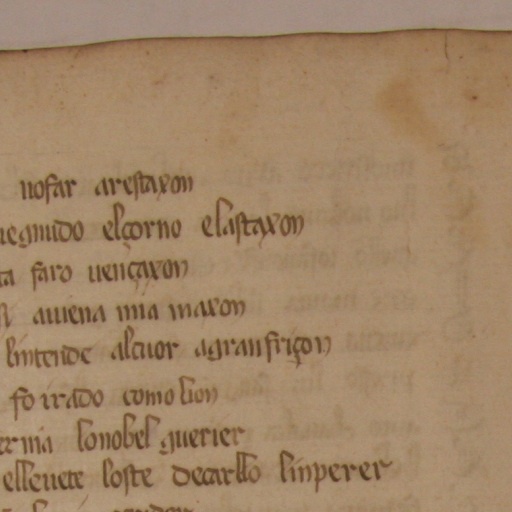 uofar arestaxon
uegnudo elçorno elastaxon
ta faro uençaxon
auena mia maxon
lintende alcuor agranfriçon
fo irado como lion
lonobel guerier
elleuete loste decarllo linperer